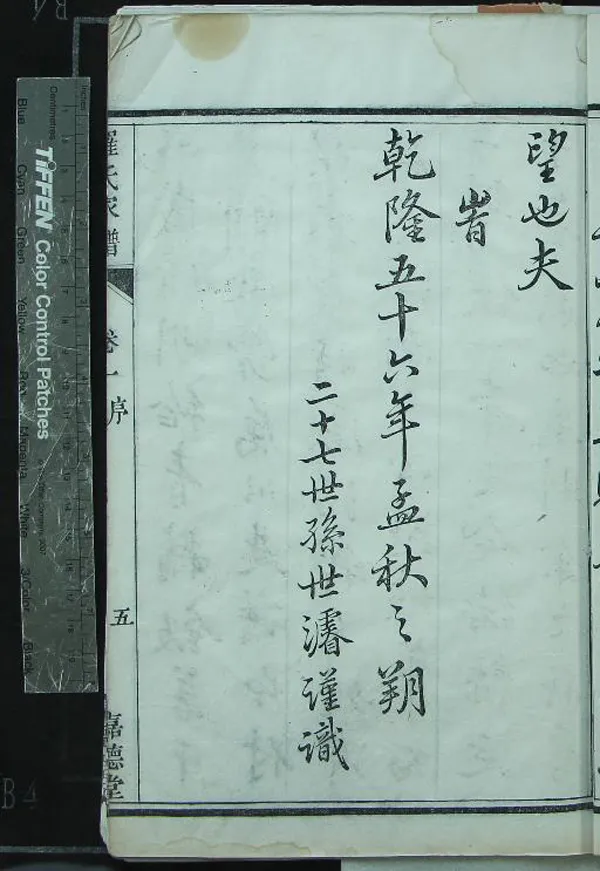 望也夫
旹
乾隆五十六年孟秋之朔
二十七世孫世濬謹識
羅氏家譜
卷一
序
五
嘉德堂
TIFFEN Color Control Patches
Inches
Centimetres
Blue
Cyan
Green
Yellow
Red
Magenta
White
3/Color
Black
B4